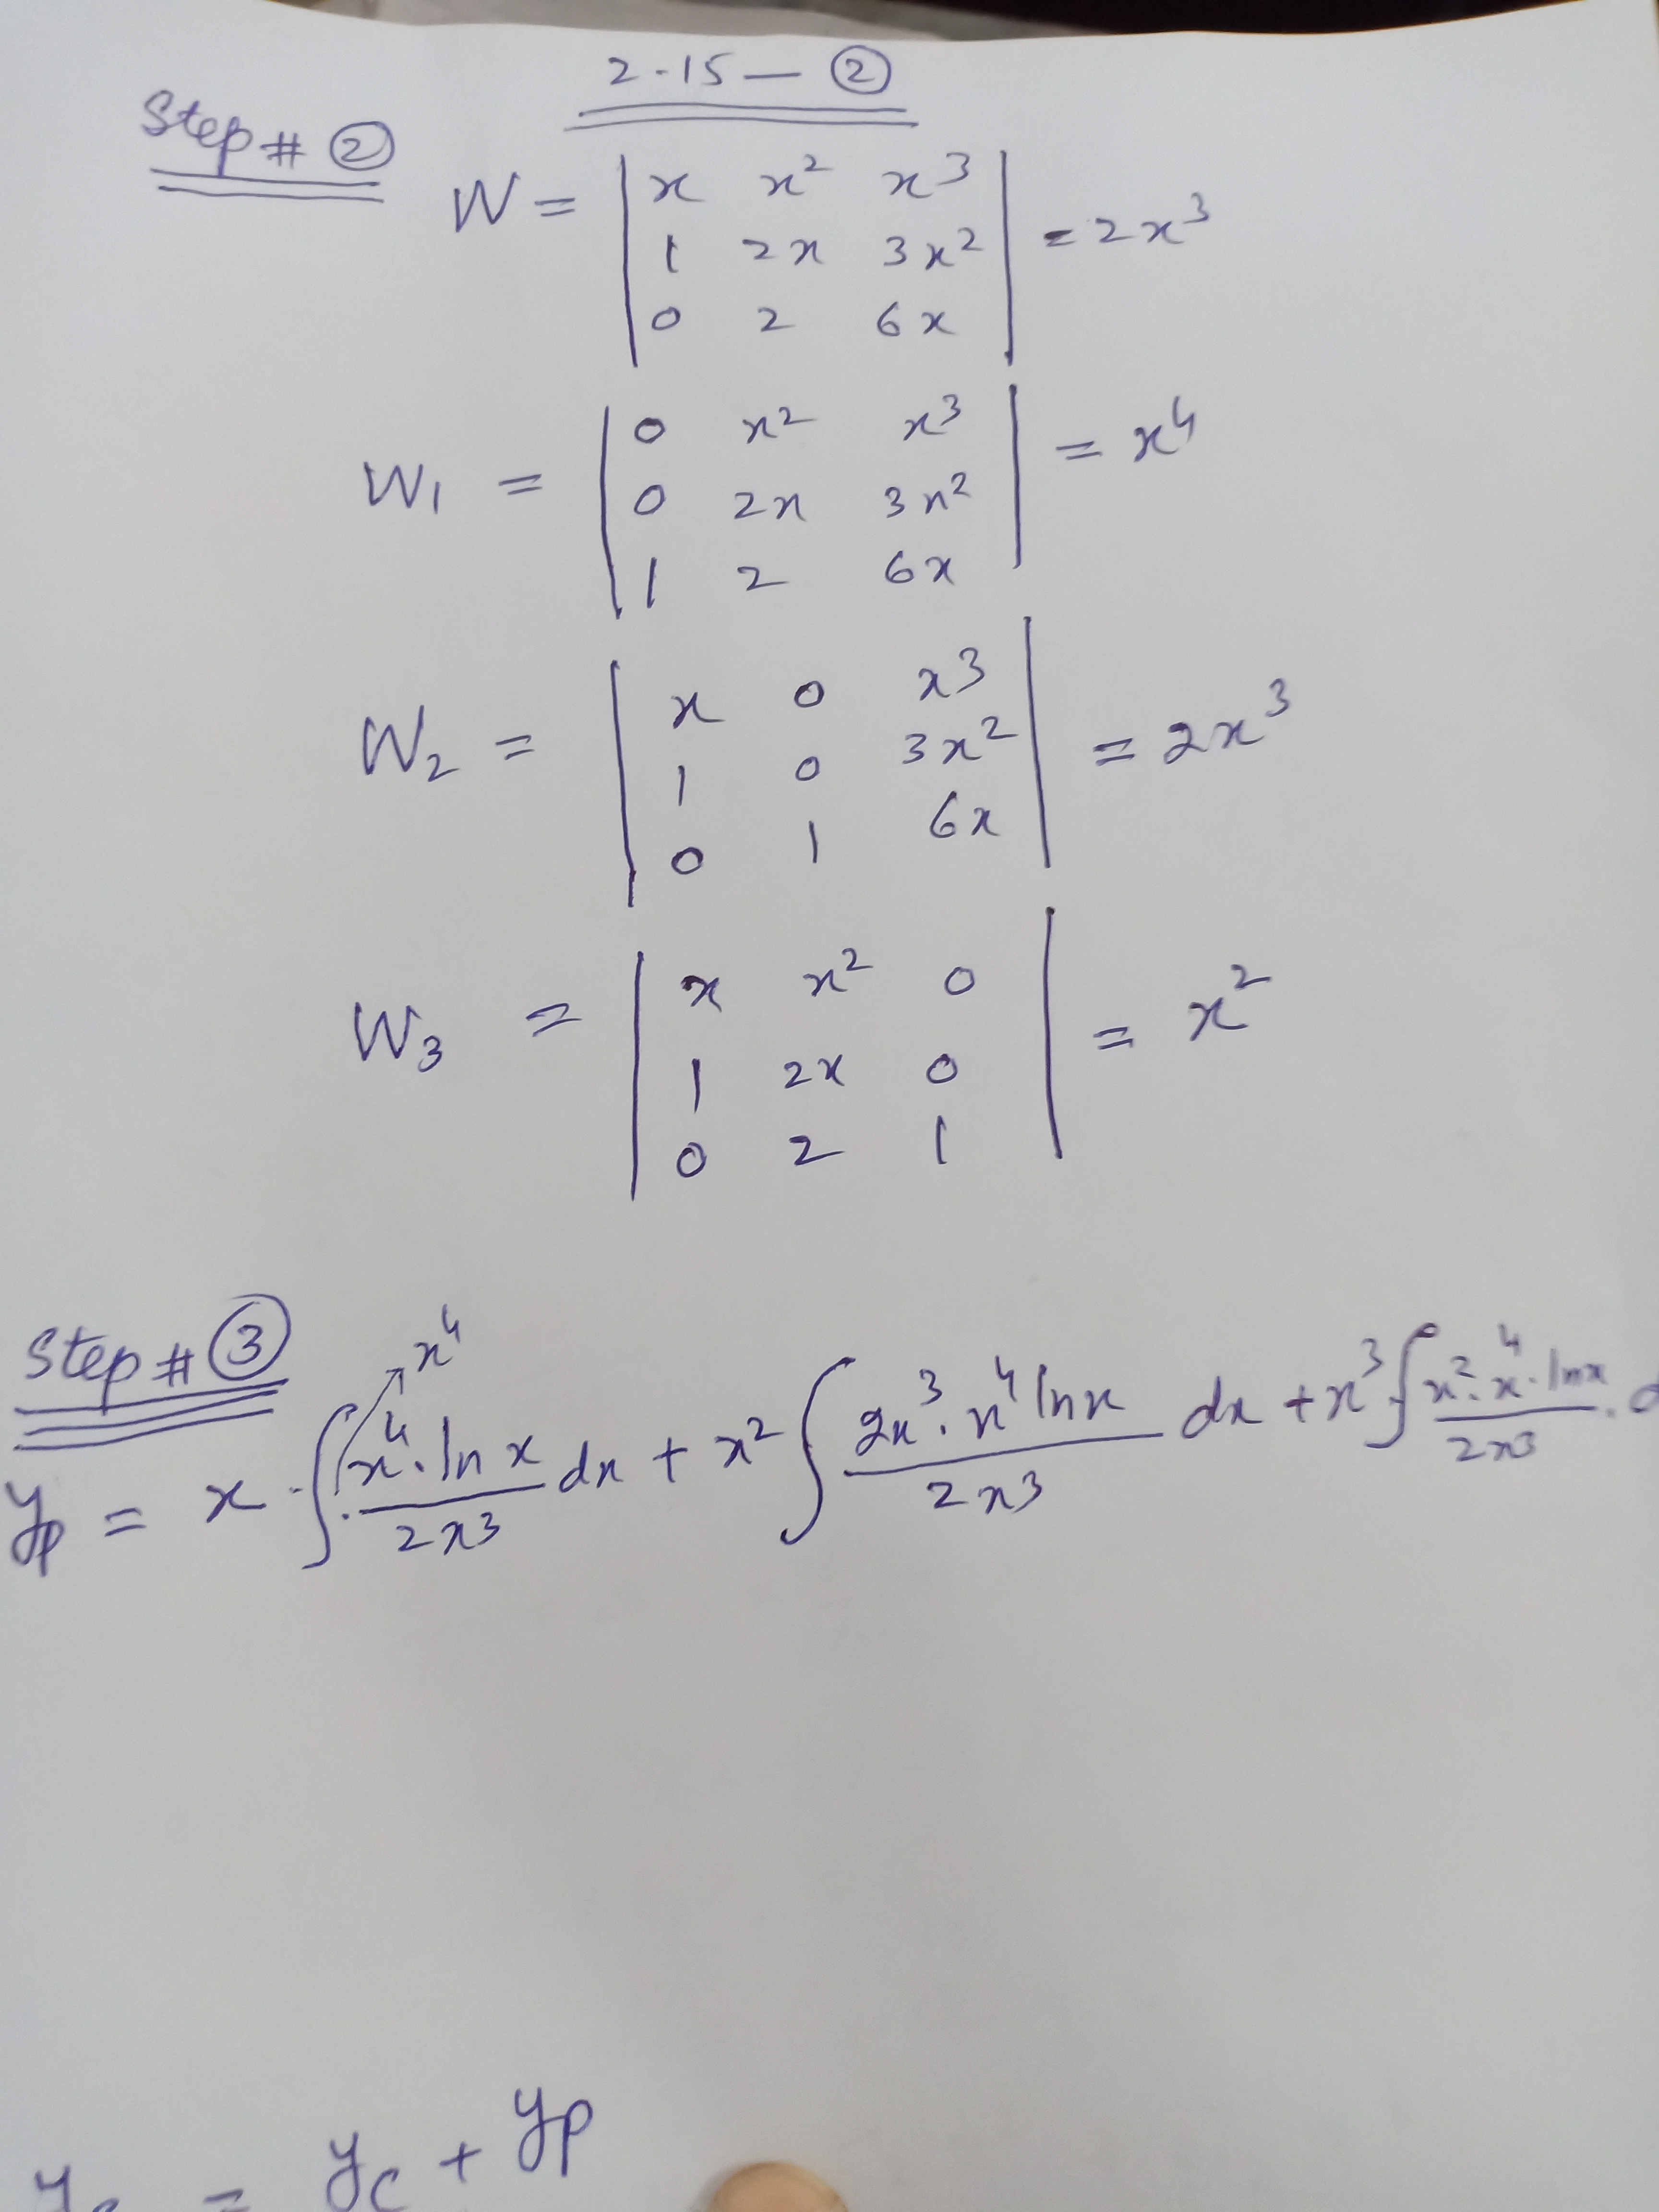 2.15 — ②
Step # ②
W = | x x² x³ |
| 1 2x 3x² | = 2x³
| 0 2 6x |
W₁ = | 0 x² x³ |
| 0 2x 3x² | = x⁴
| 1 2 6x |
W₂ = | x 0 x³ |
| 1 0 3x² | = 2x³
| 0 1 6x |
W₃ = | x x² 0 |
| 1 2x 0 | = x²
| 0 2 1 |
Step # ③
x⁴
yp = x . ∫ x⁴. ln x / 2x³ dx + x² ∫ 2x³ . x⁴ ln x / 2x³ dx + x³ ∫ x². x⁴. ln x / 2x³ .
= yc + yp